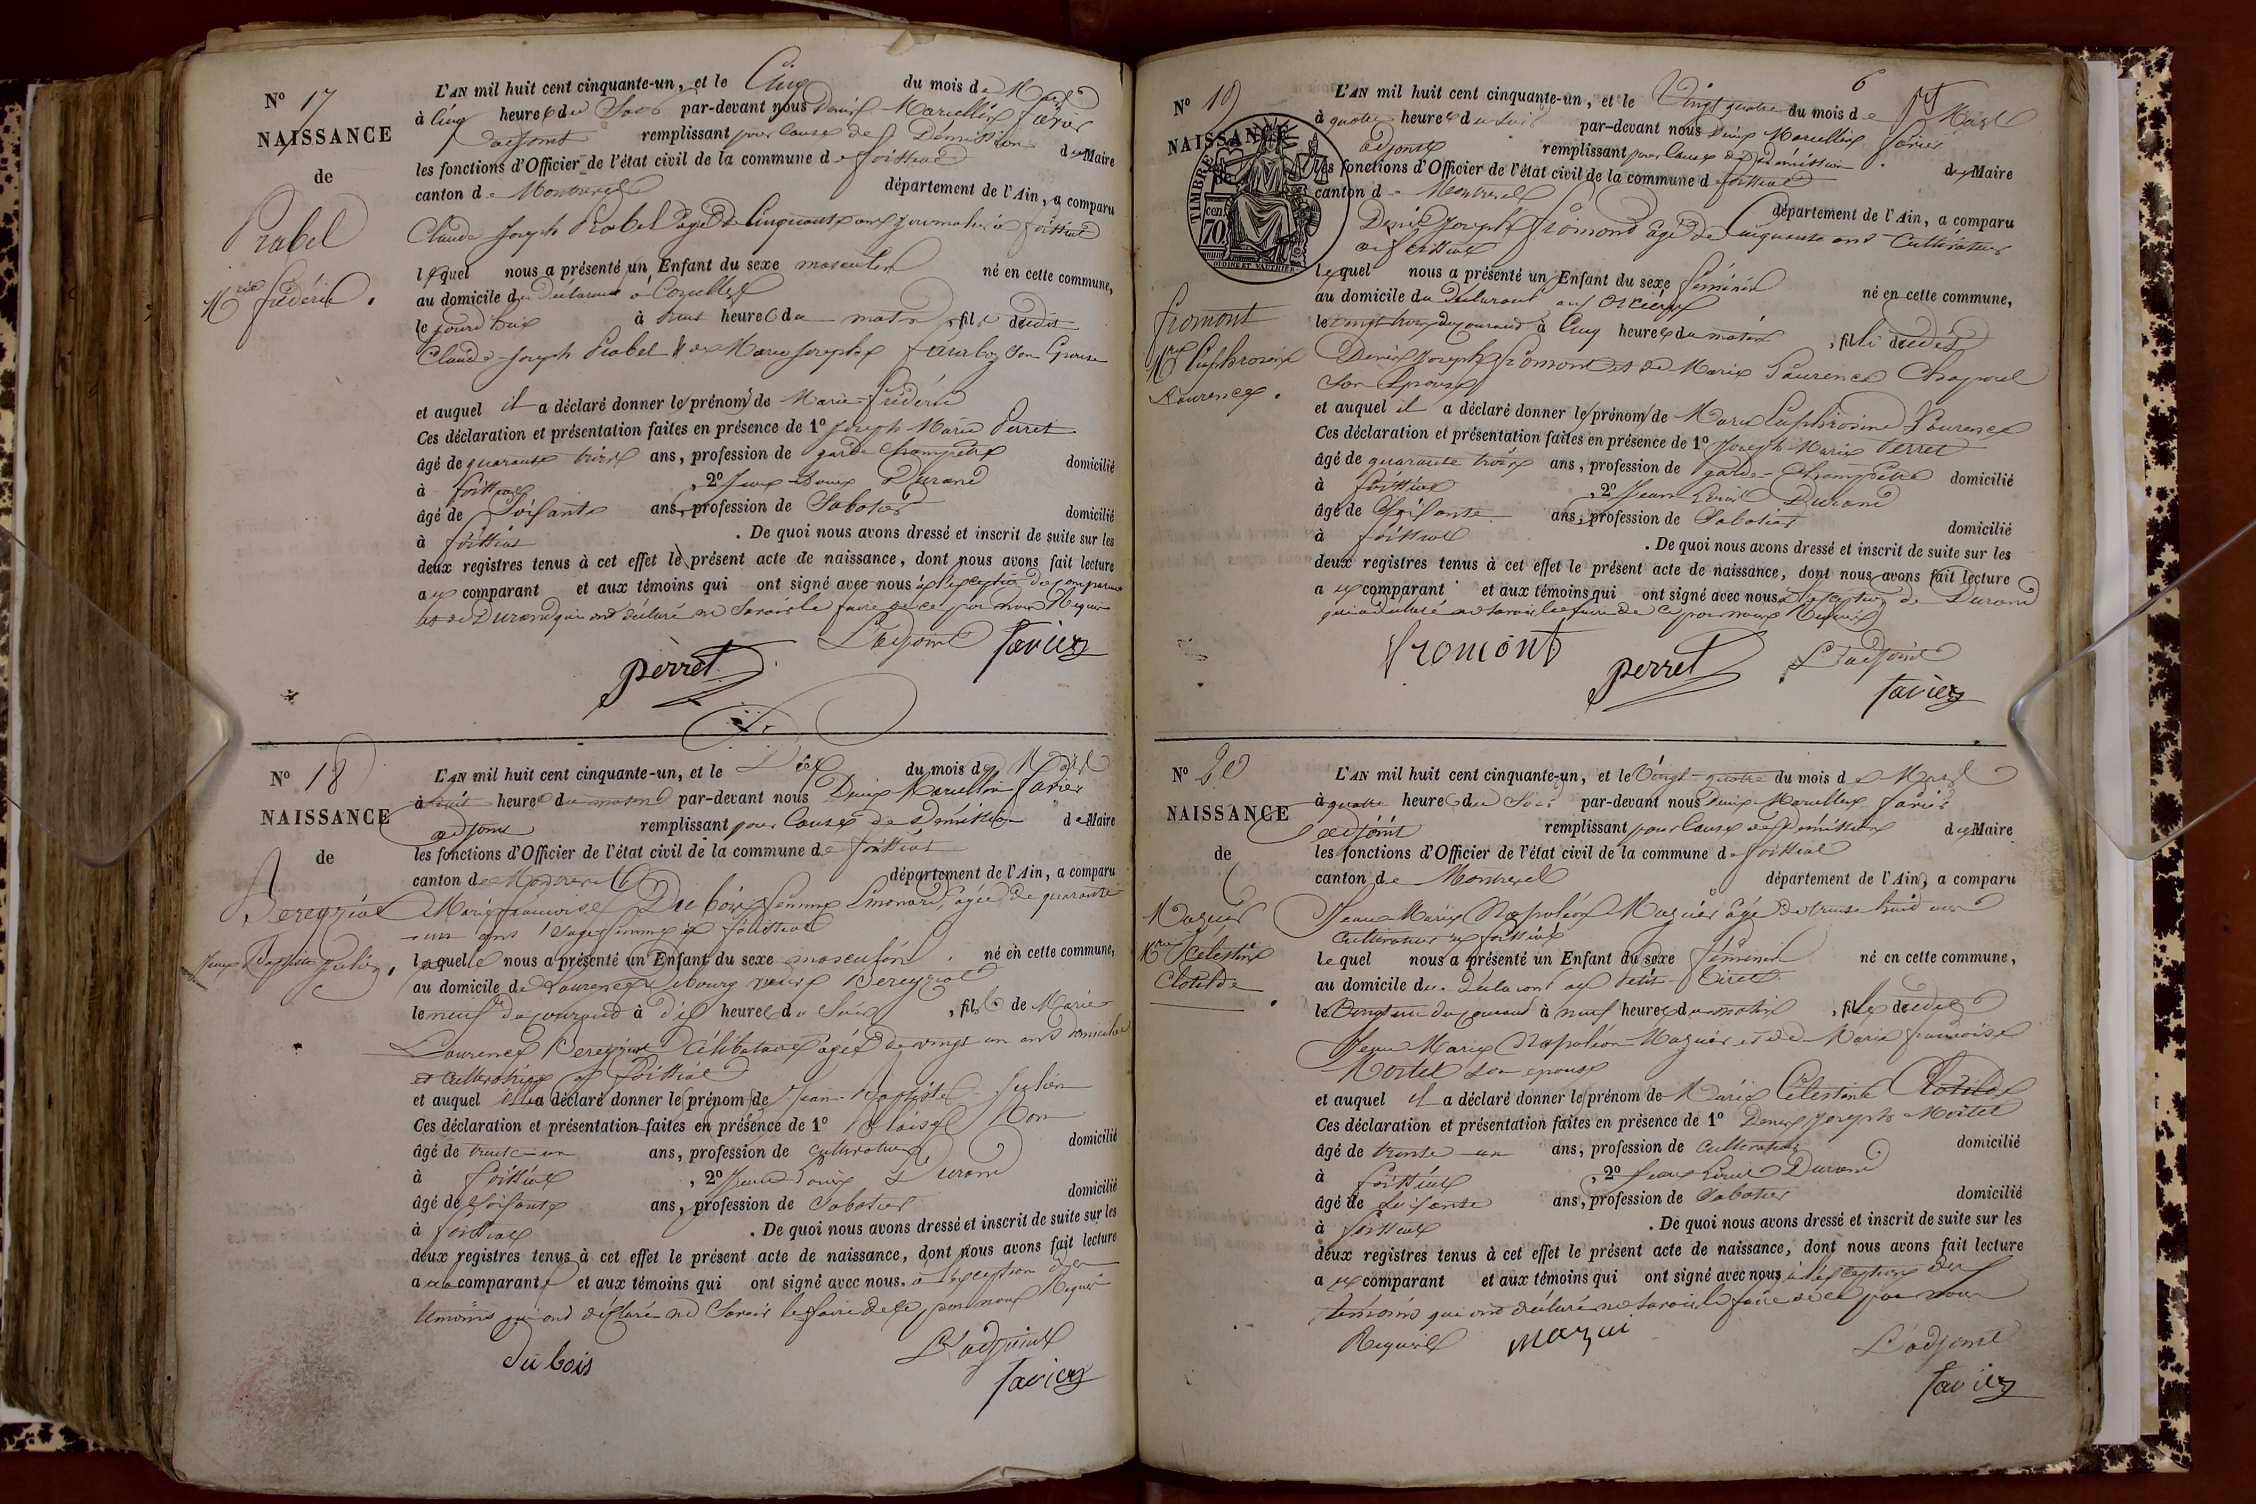 Nº 17
NAISSANCE
de
Prabel
Mie Frédéric.
L'AN mil huit cent cinquante-un, et le Cinq du mois de Mars
à Cinq heures du Soir par-devant nous Denis Marcellin Favier
adjoint remplissant pour Cause de Démission du Maire
les fonctions d'Officier de l'état civil de la commune de foissiat
canton de Montrevel département de l'Ain, a comparu
Claude Joseph Prabel âgé de Cinquante ans journalier à foissiat
lequel nous a présenté un Enfant du sexe masculin né en cette commune,
au domicile du Déclarant à
le jourd'hui à trois heures du matin, fils dudit
Claude-Joseph Prabel & de Marie Josephe son Epouse
et auquel il a déclaré donner le prénom de Marie-Frédéric
Ces déclaration et présentation faites en présence de 1º Joseph Marie Perret
âgé de quarante trois ans, profession de garde Champêtre domicilié
à foissiat, 2º Jean-Louis Durand
âgé de Soisante ans, profession de Sabotier domicilié
à foissiat. De quoi nous avons dressé et inscrit de suite sur les
deux registres tenus à cet effet le présent acte de naissance, dont nous avons fait lecture
au comparant et aux témoins qui ont signé avec nous à l'exception du comparant
et de Durand qui ont déclaré ne Savoir le faire de ce par nous Requis
L'adjoint
perret Favier
Nº 18
NAISSANCE
de
Bereyziat
Jean Baptiste Julien.
L'AN mil huit cent cinquante-un, et le Dix du mois de Mars
à huit heures du matin par-devant nous Denis Marcellin Favier
adjoint remplissant pour Cause de Démission du Maire
les fonctions d'Officier de l'état civil de la commune de foissiat
canton de Montrevel département de l'Ain, a comparu
Marie françoise Dubois femme âgée de quarante
un ans Sage femme à foissiat
laquelle nous a présenté un Enfant du sexe masculin né en cette commune,
au domicile de Laurence veuve Bereyziat
le neuf du courant à dix heures du Soir, fils de Marie
Laurence Bereyziat Célibataire âgée de vingt un ans domiciliée
et Cultivatrice à foissiat
et auquel elle a déclaré donner le prénom de Jean-Baptiste Julien
Ces déclaration et présentation faites en présence de 1º Blaise
âgé de trente-un ans, profession de Cultivateur domicilié
à foissiat, 2º Jean Louis Durand
âgé de Soisante ans, profession de Sabotier domicilié
à foissiat. De quoi nous avons dressé et inscrit de suite sur les
deux registres tenus à cet effet le présent acte de naissance, dont nous avons fait lecture
a la comparante et aux témoins qui ont signé avec nous, à l'exception des
témoins qui ont déclaré ne Savoir le faire de ce par nous Requis
L'adjoint
dubois Favier
6
Nº 19
NAISSANCE
TIMBRE
cen.
70
OUDINE ET VAUTHIER
fromont
Mie Euphrosine
Laurence.
L'AN mil huit cent cinquante-un, et le Vingt quatre du mois de Mars
à quatre heures du Soir par-devant nous Denis Marcellin Favier
adjoint remplissant pour Cause de Démission du Maire
les fonctions d'Officier de l'état civil de la commune de foissiat
canton de Montrevel
département de l'Ain, a comparu
Denis Joseph fromont âgé de Cinquante ans Cultivateur
à foissiat
lequel nous a présenté un Enfant du sexe féminin né en cette commune,
au domicile du Déclarant aux
le vingt trois du courant à Cinq heures du matin, fille dudit
Denis Joseph fromont et de Marie Laurence
Son Epouse
et auquel il a déclaré donner le prénom de Marie Euphrosine Laurence
Ces déclaration et présentation faites en présence de 1º Joseph Marie Perret
âgé de quarante trois ans, profession de garde-Champêtre domicilié
à foissiat, 2º Jean Louis Durand
âgé de Soisante ans, profession de Sabotier domicilié
à foissiat. De quoi nous avons dressé et inscrit de suite sur les
deux registres tenus à cet effet le présent acte de naissance, dont nous avons fait lecture
au comparant et aux témoins qui ont signé avec nous à l'exception de Durand
qui a déclaré ne savoir le faire de ce par nous Requis
fromont perret L'adjoint
Favier
Nº 20
NAISSANCE
de
Mazuir
Mie Célestine
Clotilde.
L'AN mil huit cent cinquante-un, et le Vingt-quatre du mois de Mars
à quatre heures du Soir par-devant nous Denis Marcellin Favier
adjoint remplissant pour Cause de Démission du Maire
les fonctions d'Officier de l'état civil de la commune de foissiat
canton de Montrevel département de l'Ain, a comparu
Jean Marie Napoléon Mazuir âgé de trente huit ans
Cultivateur à foissiat
lequel nous a présenté un Enfant du sexe féminin né en cette commune,
au domicile du Déclarant au Petit
le Vingt un du courant à neuf heures du matin, fille dudit
Jean Marie Napoléon Mazuir et de Marie françoise
son epouse
et auquel il a déclaré donner le prénom de Marie Célestine Clotilde
Ces déclaration et présentation faites en présence de 1º Denis Joseph
âgé de trente-un ans, profession de Cultivateur domicilié
à foissiat, 2º Jean Louis Durand
âgé de Soisante ans, profession de Sabotier domicilié
à foissiat. De quoi nous avons dressé et inscrit de suite sur les
deux registres tenus à cet effet le présent acte de naissance, dont nous avons fait lecture
au comparant et aux témoins qui ont signé avec nous à l'exception des
témoins qui ont déclaré ne savoir le faire de ce par nous
Requis mazui L'adjoint
Favier